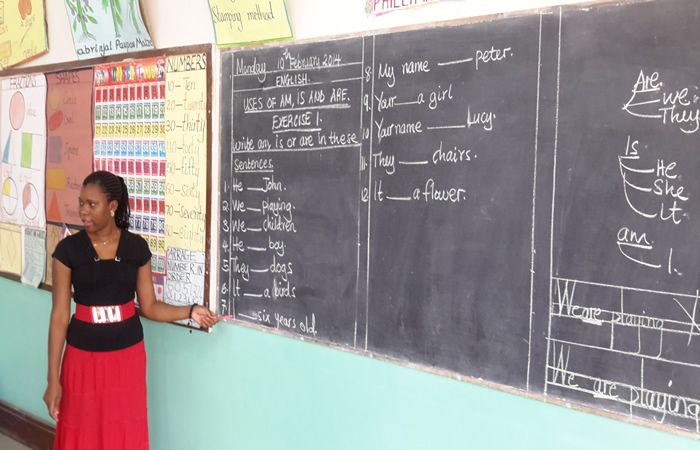 Stamping method
brinjal Pawpaw Maize
SHAPES
NUMBERS
10-Ten
20-Twenty
30-thirty
40-forty
50-fifty
60-sixty
70-seventy
80-eighty
ARRAGE
NUMBER IN
ORDER
Monday 10th February 2014
ENGLISH.
USES OF AM, IS AND ARE.
EXERCISE 1.
Write am, is or are in these
Sentences.
1. He ___ John.
2. We ___ playing.
3. We ___ children
4. He ___ boy.
5. They ___ dogs
6. It ___ a birds
7. I ___ six years old.
8. My name ___ peter.
9. Your ___ a girl
10. Your name ___ Lucy.
11. They ___ chairs.
12. It ___ a flower.
Are
we
They
Is
He
She
It
am
I
We are playing
We are playing